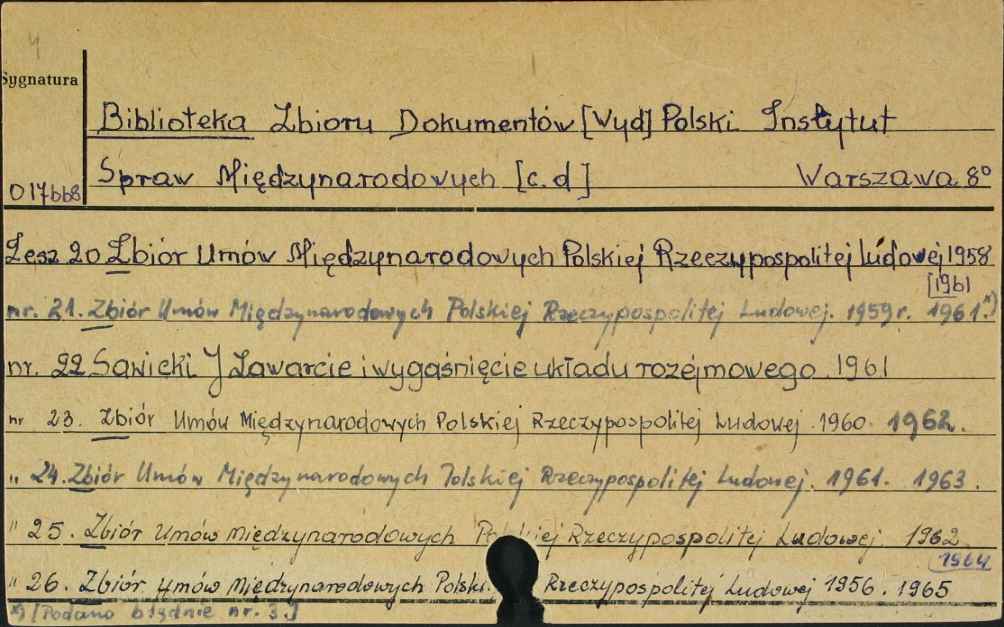 4
Sygnatura
Biblioteka Zbioru Dokumentów [Wyd] Polski Instytut
017668 Spraw Międzynarodowych [c.d] Warszawa 8°
Zesz 20 Zbiór Umów Międzynarodowych Polskiej Rzeczypospolitej Ludowej 1958
[1961
nr. 21. Zbiór Umów Międzynarodowych Polskiej Rzeczypospolitej Ludowej. 1959r. 1961.*)
nr. 22 Sawicki J Zawarcie i wygaśnięcie układu rozejmowego. 1961
nr 23. Zbiór Umów Międzynarodowych Polskiej Rzeczypospolitej Ludowej. 1960. 1962.
" 24. Zbiór Umów Międzynarodowych Polskiej Rzeczypospolitej Ludowej. 1961. 1963.
" 25. Zbiór Umów Międzynarodowych Polskiej Rzeczypospolitej Ludowej. 1962
1964
" 26. Zbiór Umów Międzynarodowych Polski Rzeczypospolitej Ludowej 1956. 1965
*) [Podano błędnie nr. 3.]